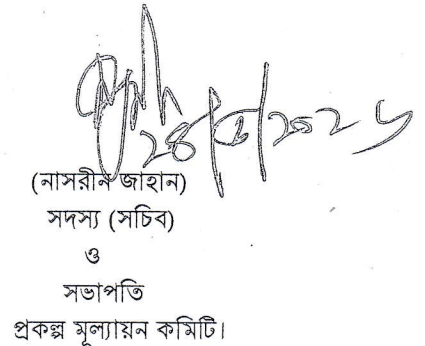 (নাসরীন জাহান)
সদস্য (সচিব)
ও
সভাপতি
প্রকল্প মূল্যায়ন কমিটি।